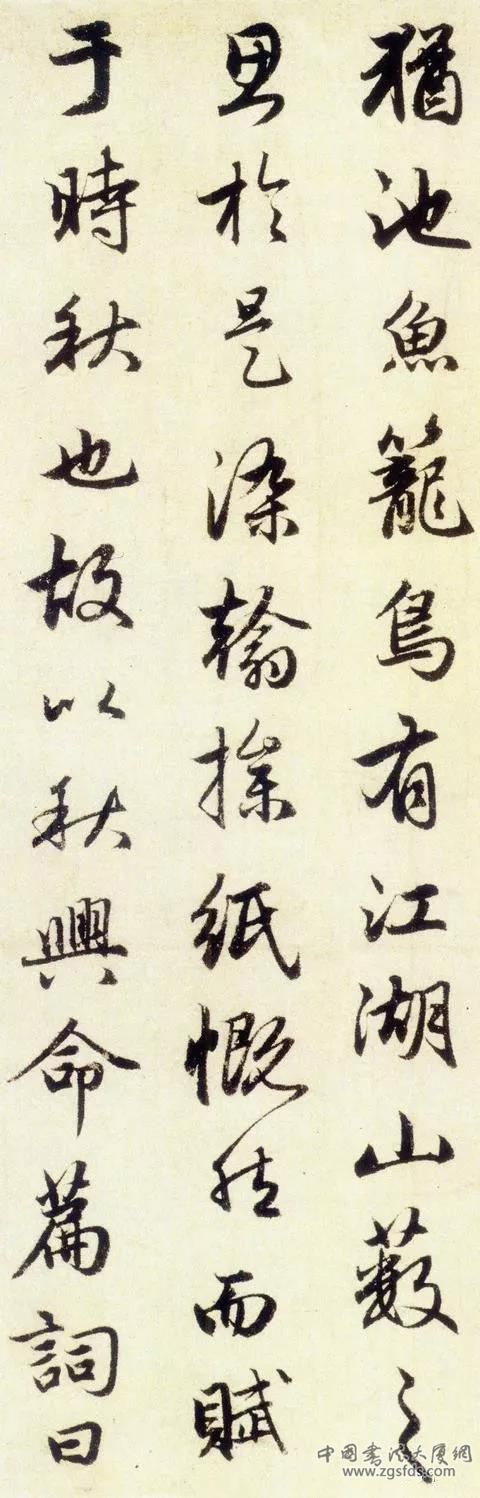 猶池魚籠鳥有江湖山藪之
思於是染翰操紙慨然而賦
于時秋也故以秋興命篇詞曰
中國書法大厦網
www.zgsfds.com